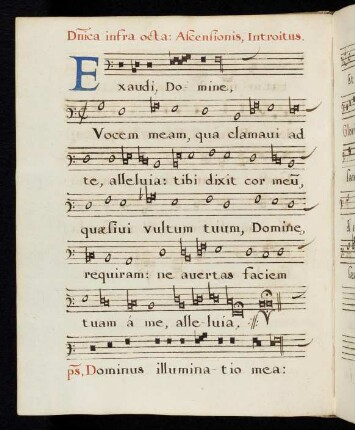 Dn̄ica infra octa: Ascensionis, Introitus.
Exaudi, Do-mine,
Vocem meam, qua clamaui ad
te, alleluia: tibi dixit cor meū,
quæsiui vultum tuum, Domine,
requiram: ne auertas faciem
tuam á me, alle-luia,
ps. Dominus illumina-tio mea: